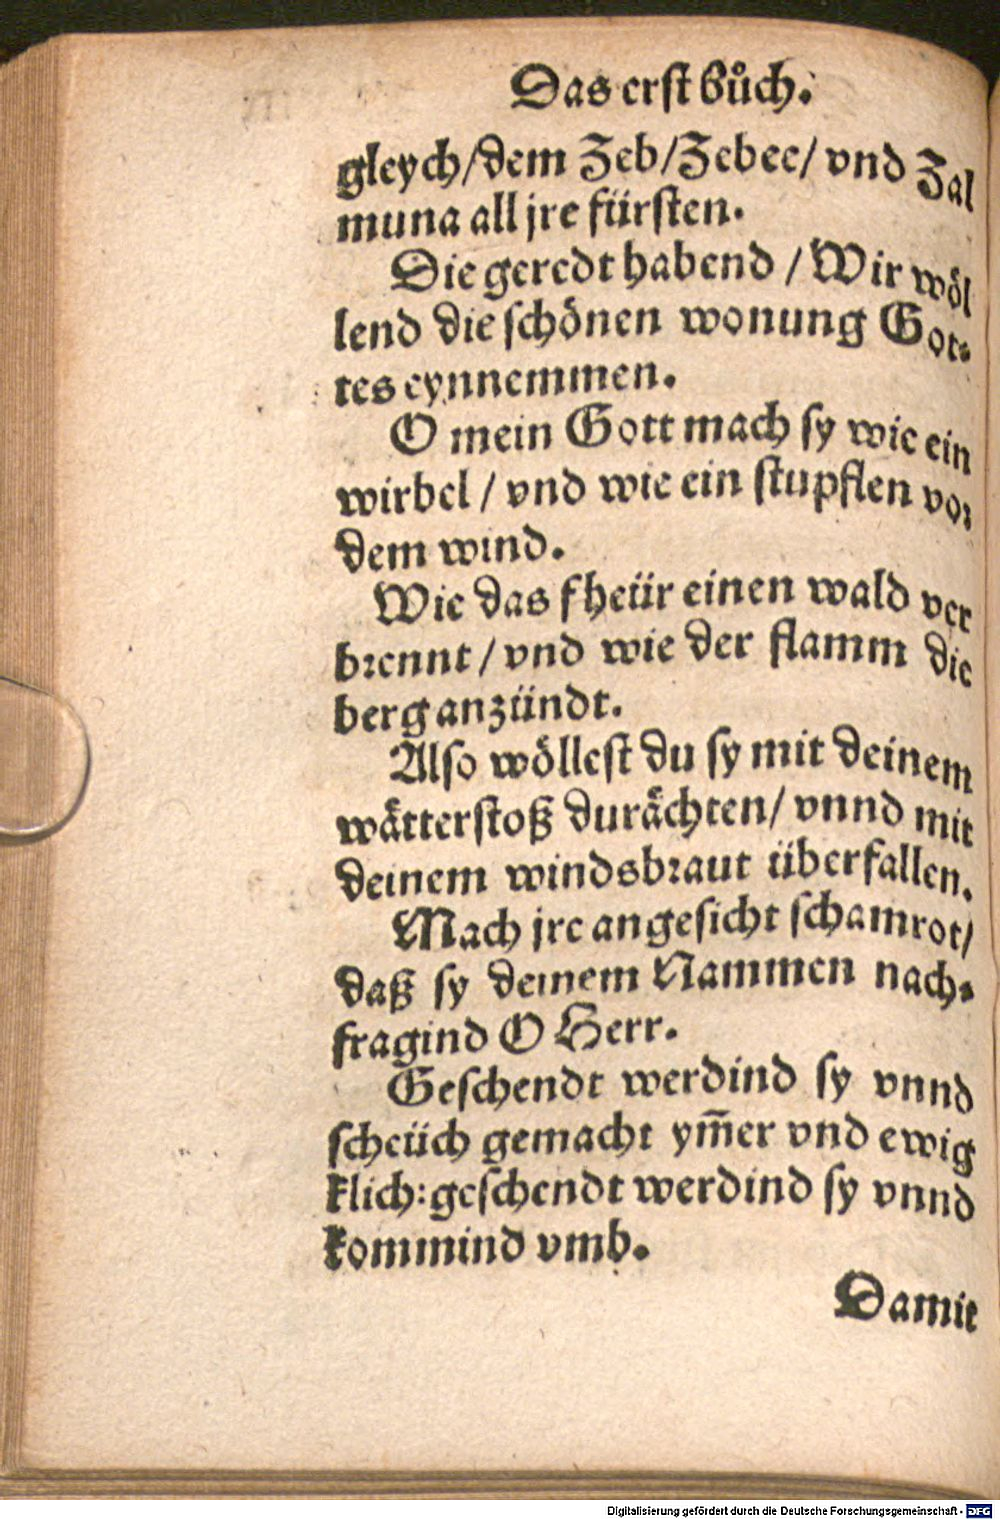 Das erst bůch.
gleych/dem Zeb/Zebee/ vnd Zal
muna all jre fürsten.
Die geredt habend / Wir wöl
lend die schönen wonung Got-
tes eynnemmen.
O mein Gott mach sy wie ein
wirbel / vnd wie ein stupflen vor
dem wind.
Wie das fheür einen wald ver
brennt / vnd wie der flamm die
berg anzündt.
Also wöllest du sy mit deinem
wätterstoß durächten/ vnnd mit
deinem windsbraut überfallen.
Mach jre angesicht schamrot/
daß sy deinem Nammen nach-
fragind O Herr.
Geschendt werdind sy vnnd
scheüch gemacht ym̃er vnd ewig
klich: geschendt werdind sy vnnd
kommind vmb.
Damit
Digitalisierung gefördert durch die Deutsche Forschungsgemeinschaft - DFG